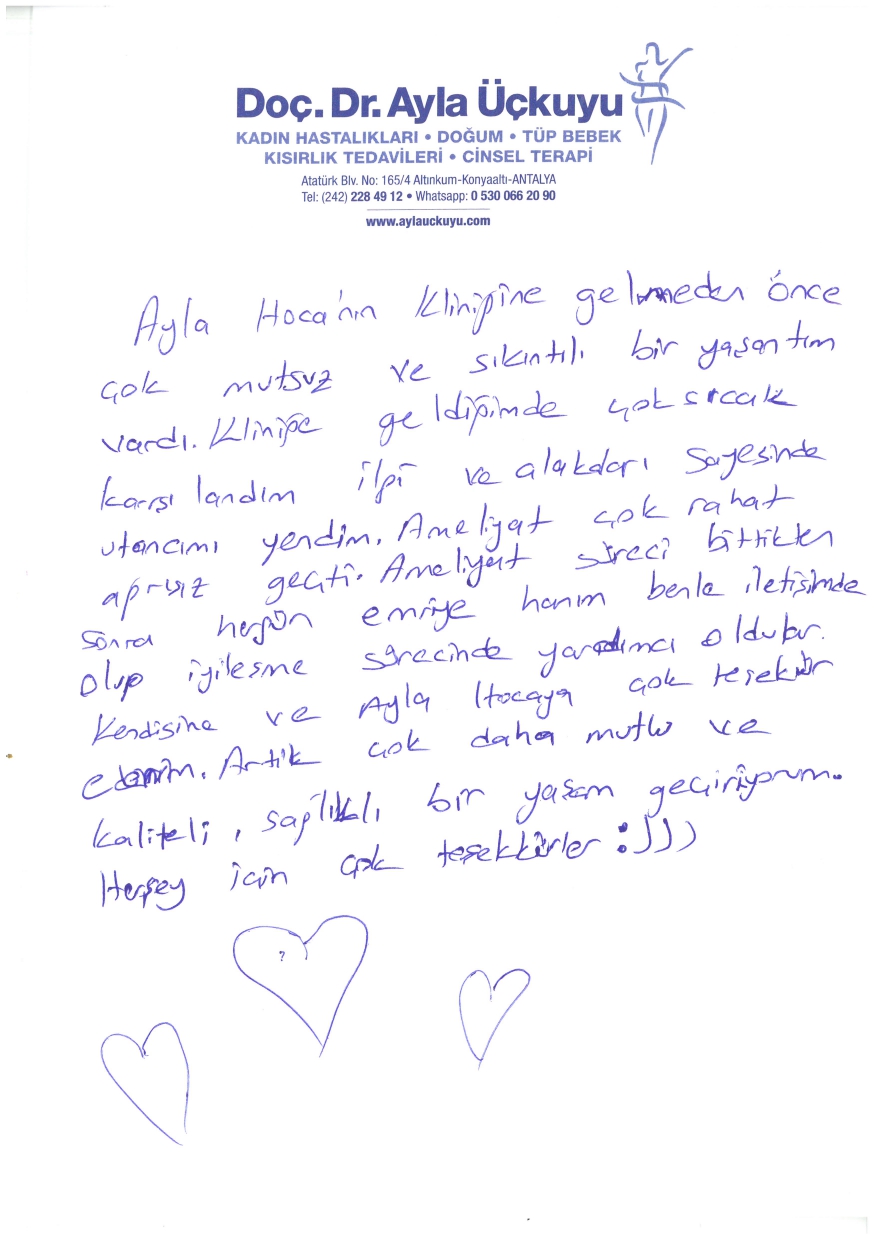 Doç. Dr. Ayla Üçkuyu
KADIN HASTALIKLARI • DOĞUM • TÜP BEBEK
KISIRLIK TEDAVİLERİ • CİNSEL TERAPİ
Atatürk Blv. No: 165/4 Altınkum-Konyaaltı-ANTALYA
Tel: (242) 228 49 12 • Whatsapp: 0 530 066 20 90
www.aylauckuyu.com
Ayla Hoca'nın Kliniğine gelmeden önce
çok mutsuz ve sıkıntılı bir yaşantım
vardı. Kliniğe geldiğimde çok sıcak
karşılandım ilgi ve alakaları sayesinde
utancımı yendim. Ameliyat çok rahat
ağrısız geçti. Ameliyat süreci bittikten
sonra hergün emriye hanım benle iletişimde
olup iyileşme sürecinde yardımcı oldular.
Kendisine ve Ayla Hocaya çok teşekkür
ederim. Artık çok daha mutlu ve
kaliteli, sağlıklı bir yaşam geçiriyorum.
Herşey için çok teşekkürler :)))
?